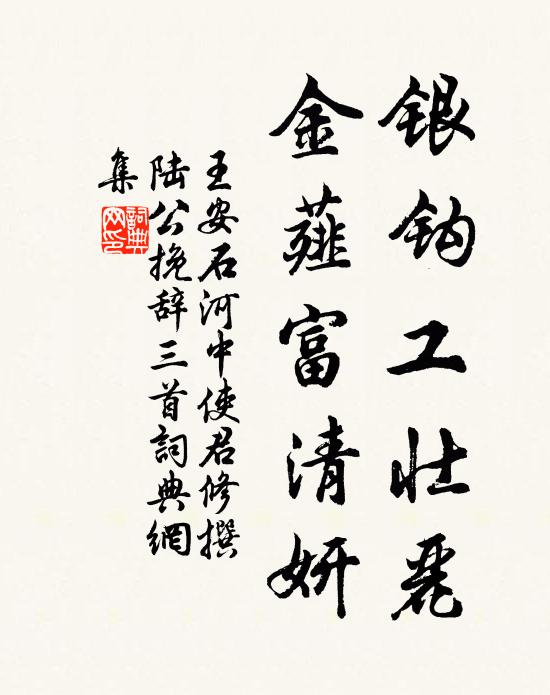 银钩工壮丽
金薤富清妍
王安石河中使君修撰
陆公挽辞三首詞典網
集
詞典
网印